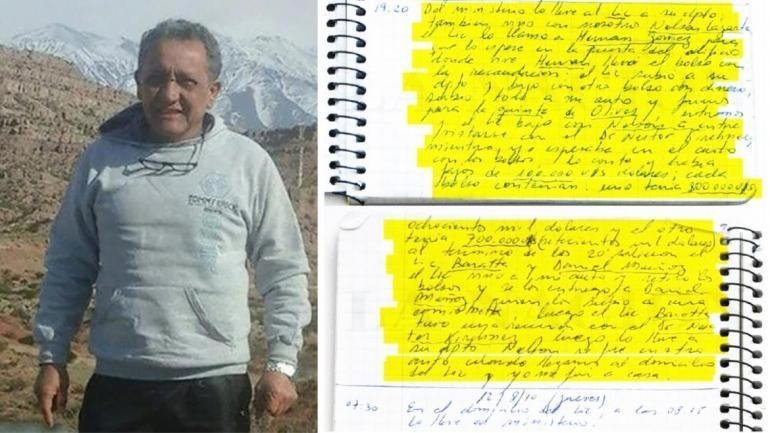 TOMMY
19.20 Del ministerio lo lleve al Lic a su dpto,
tambien vino con nosotros Nelson Lazarte
el Lic lo llamo a Hernan Gomez para
que lo espere en la puerta del edificio
donde vive Hernan, llevó el bolso con
la recaudacion; el Lic subio a su
dpto y bajo con otro bolso con dinero,
subio todo a mi auto y fuimos
para la quinta de Olivos, entramos
el Lic bajo con Nelson a
con el Dr Nestor Kirchner,
mientras yo esperaba en el auto
con los bolsos, lo conte y habia
fajos de 100.000 U$S dolares; cada
bolso contenian: uno tenia 800000U$S
ochocientos mil dolares y el otro
tenia 700.000U$ setecientos mil dolares
al termino de los 20' salieron el
Lic Baratta y Daniel Muñoz
el Lic vino a mi auto y los
bolsos y se los entrego a Daniel
Muñoz, quien los subio a una
camioneta. luego el Lic Baratta
tuvo una reunion con el Dr Nes
tor Kirchner y luego lo lleve a
su dpto Nelson se fue en otro
auto cuando llegamos al domicilio
del Lic y yo me fui a casa.
12/8/10 (jueves)
07:30 En el domicilio del Lic, a las 08.15
lo lleve al ministerio.